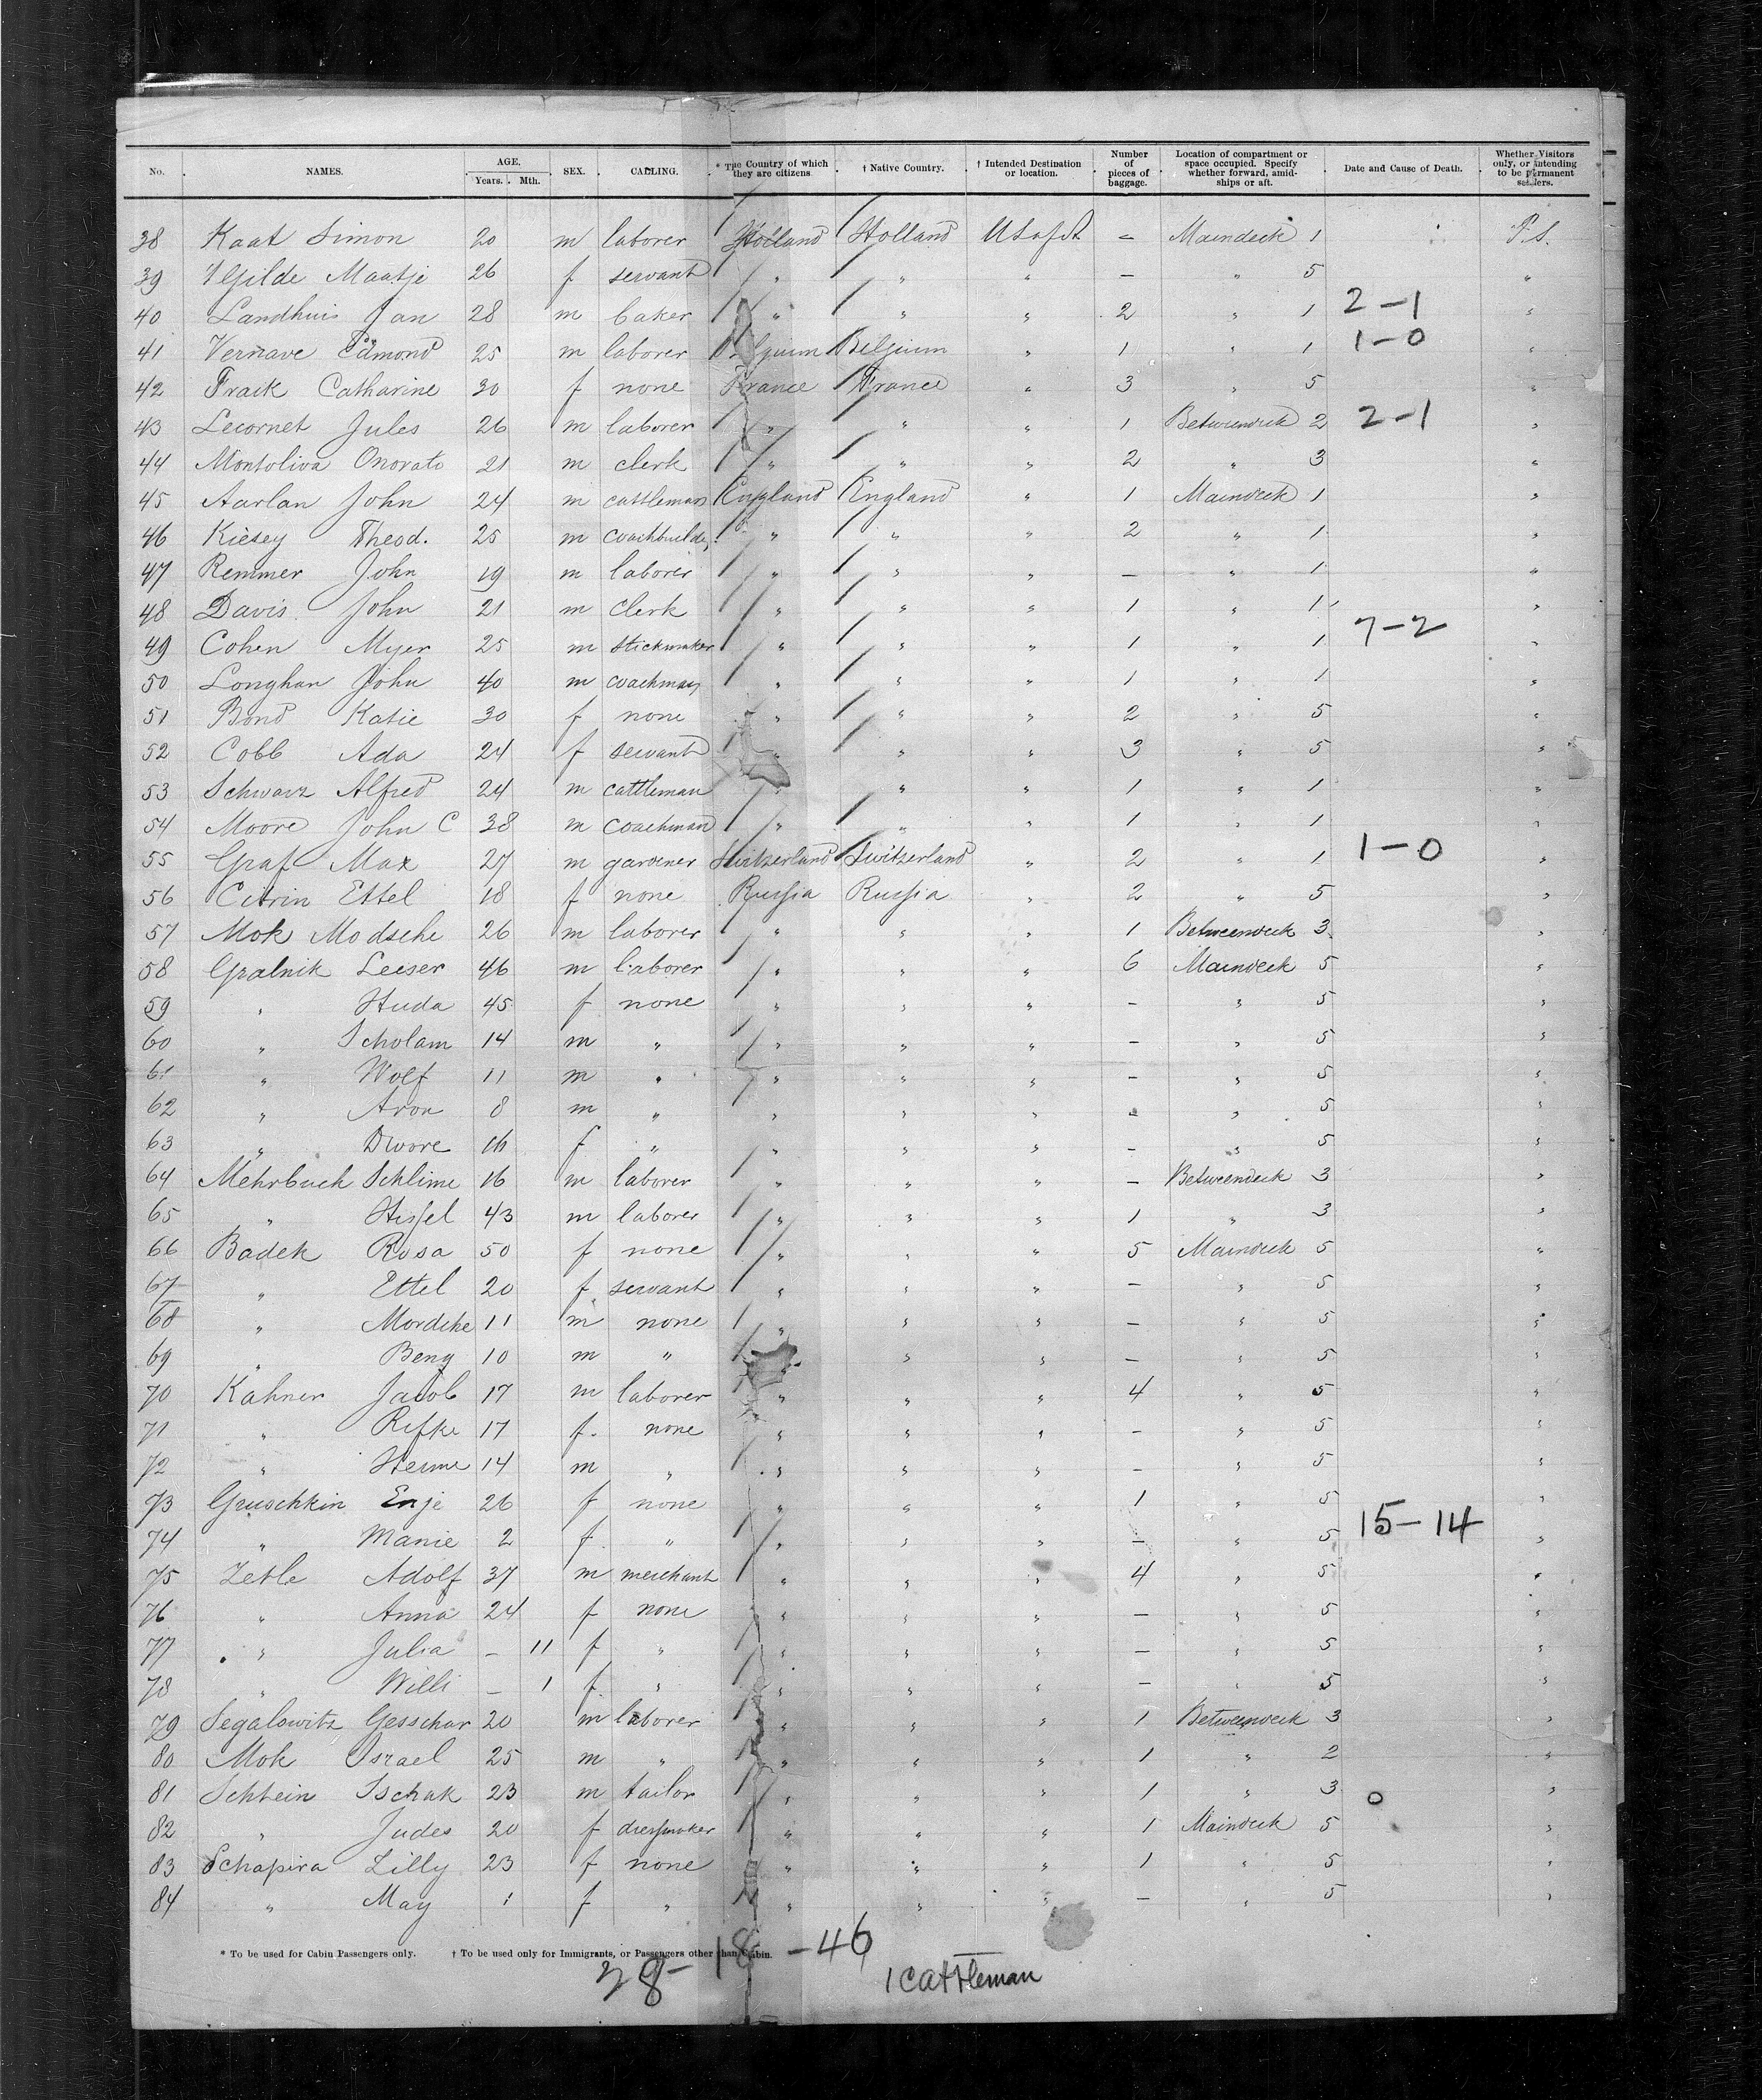 No. NAMES. AGE. Years. Mth. SEX. CALLING. * The Country of which they are citizens. † Native Country. † Intended Destination or location. Number of pieces of baggage. Location of compartment or space occupied. Specify whether forward, amidships or aft. Date and Cause of Death. Whether Visitors only, or intending to be permanent settlers.
38 Kaat Simon 20 m laborer Holland Holland U S of A - Maindeck 1 P.S.
39 Maatje 26 f servant " " " - " 5 "
40 Landhuis Jan 28 m baker " " " 2 " 1 2-1 "
41 Vernave Edmond 25 m laborer Belgium Belgium " 1 " 1 1-0 "
42 Frack Catharine 30 f none France France " 3 " 5 "
43 Lecornet Jules 26 m laborer " " " 1 Betweendeck 2 2-1 "
44 Montoliva Onorato 21 m clerk " " " 2 " 3 "
45 Aarlan John 24 m cattleman England England " 1 Maindeck 1 "
46 Kiesey Theod. 25 m coachbuilder " " " 2 " 1 "
47 Remmer John 19 m laborer " " " - " 1 "
48 Davis John 21 m clerk " " " 1 " 1 "
49 Cohen Myer 25 m stickmaker " " " 1 " 1 7-2 "
50 Longhan John 40 m coachman " " " 1 " 1 "
51 Bond Katie 30 f none " " " 2 " 5 "
52 Cobb Ada 24 f servant " " " 3 " 5 "
53 Schwarz Alfred 24 m cattleman " " " 1 " 1 "
54 Moore John C 38 m coachman " " " 1 " 1 "
55 Graf Max 27 m gardener Switzerland Switzerland " 2 " 1 1-0 "
56 Citrin Ettel 18 f none Russia Russia " 2 " 5 "
57 Mok Modsche 26 m laborer " " " 1 Betweendeck 3 "
58 Gralnik Leeser 46 m laborer " " " 6 Maindeck 5 "
59 " Huda 45 f none " " " - " 5 "
60 " Scholam 14 m " " " " - " 5 "
61 " Wolf 11 m " " " " - " 5 "
62 " Aron 8 m " " " " - " 5 "
63 " Dwore 16 f " " " " - " 5 "
64 Mehrbuch Schlime 16 m laborer " " " - Betweendeck 3 "
65 " Hissel 43 m laborer " " " 1 " 3 "
66 Badek Rosa 50 f none " " " 5 Maindeck 5 "
67 " Ettel 20 f servant " " " - " 5 "
68 " Mordche 11 m none " " " - " 5 "
69 " Beny 10 m " " " " - " 5 "
70 Kahner Jacob 17 m laborer " " " 4 " 5 "
71 " Rifke 17 f. none " " " - " 5 "
72 " 14 m " " " " - " 5 "
73 Gruschkin Enje 26 f none " " " 1 " 5 "
74 " Manie 2 f " " " " - " 5 15-14 "
75 Zetle Adolf 37 m merchant " " " 4 " 5 "
76 " Anna 24 f none " " " - " 5 "
77 " Julia - 11 f " " " " - " 5 "
78 " Willi - 1 f " " " " - " 5 "
79 Segalowitz Gesschar 20 m laborer " " " 1 Betweendeck 3 "
80 Mok Israel 25 m " " " " 1 " 2 "
81 Schtein Ischak 23 m tailor " " " 1 " 3 o "
82 " Judes 20 f dressmaker " " " 1 Maindeck 5 "
83 Schapira Lilly 23 f none " " " 1 " 5 "
84 " May 1 f " " " " - " 5 "
* To be used for Cabin Passengers only. † To be used only for Immigrants, or Passengers other than Cabin.
28-18-46
1 cattleman